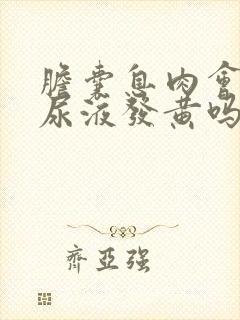 膽囊息肉會
尿液發黃嗎
齊亞強